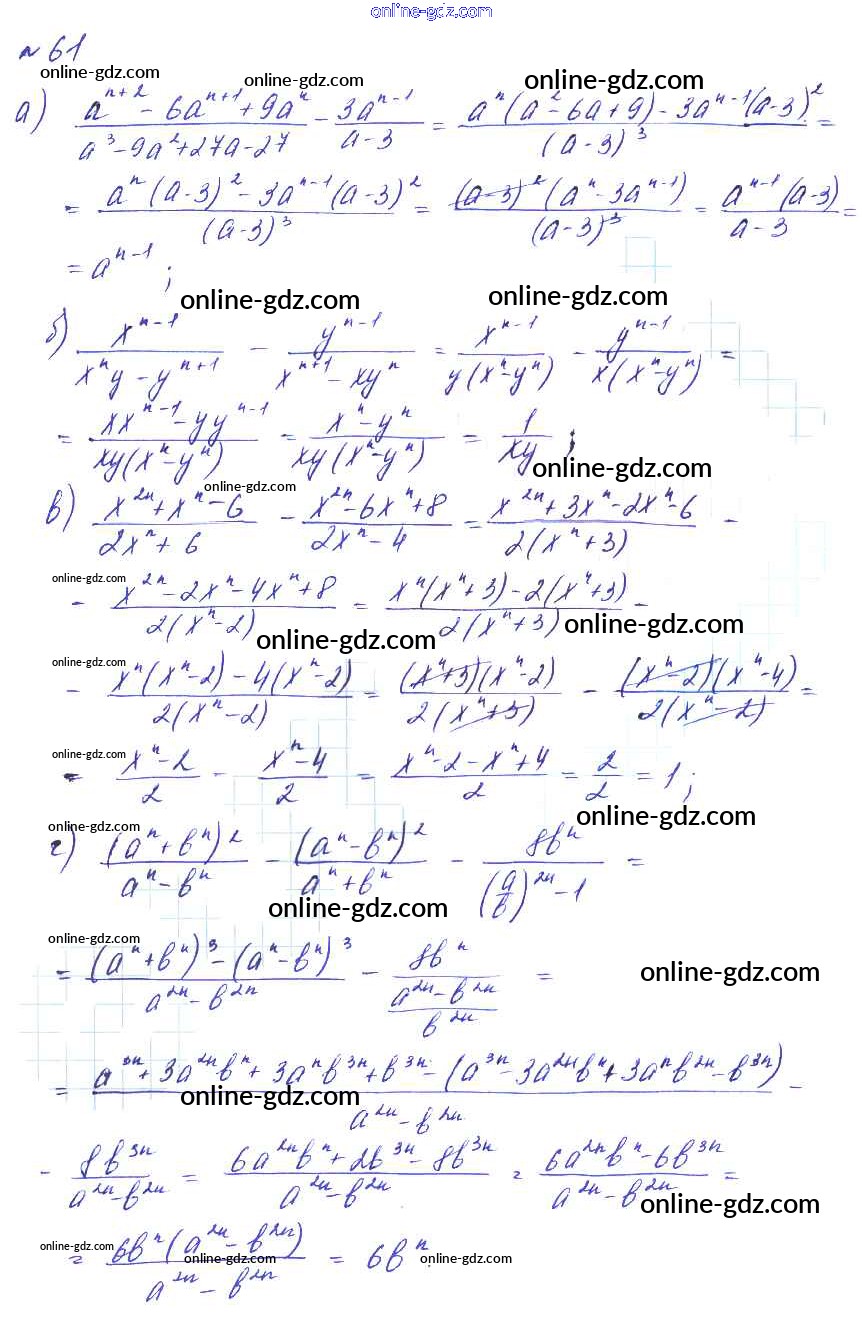 online-gdz.com
№ 61
online-gdz.com online-gdz.com
а) (a^(n+2) - 6a^(n+1) + 9a^n)/(a^3 - 9a^2 + 27a - 27) - 3a^(n-1)/(a-3) = (a^n(a^2 - 6a + 9) - 3a^(n-1)(a-3)^2)/(a-3)^3 =
= (a^n(a-3)^2 - 3a^(n-1)(a-3)^2)/(a-3)^3 = ((a-3)^2(a^n - 3a^(n-1)))/(a-3)^3 = (a^(n-1)(a-3))/(a-3) =
= a^(n-1);
online-gdz.com online-gdz.com
б) x^(n-1)/(x^n y - y^(n+1)) - y^(n-1)/(x^(n+1) - xy^n) = x^(n-1)/(y(x^n - y^n)) - y^(n-1)/(x(x^n - y^n)) =
= (xx^(n-1) - yy^(n-1))/(xy(x^n - y^n)) = (x^n - y^n)/(xy(x^n - y^n)) = 1/(xy);
online-gdz.com online-gdz.com
в) (x^(2n) + x^n - 6)/(2x^n + 6) - (x^(2n) - 6x^n + 8)/(2x^n - 4) = (x^(2n) + 3x^n - 2x^n - 6)/(2(x^n + 3)) -
online-gdz.com
- (x^(2n) - 2x^n - 4x^n + 8)/(2(x^n - 2)) = (x^n(x^n + 3) - 2(x^n + 3))/(2(x^n + 3)) -
online-gdz.com online-gdz.com
online-gdz.com
- (x^n(x^n - 2) - 4(x^n - 2))/(2(x^n - 2)) = ((x^n + 3)(x^n - 2))/(2(x^n + 3)) - ((x^n - 2)(x^n - 4))/(2(x^n - 2)) =
online-gdz.com
= (x^n - 2)/2 - (x^n - 4)/2 = (x^n - 2 - x^n + 4)/2 = 2/2 = 1;
online-gdz.com online-gdz.com
г) (a^n + b^n)^2/(a^n - b^n) - (a^n - b^n)^2/(a^n + b^n) - 8b^n/((a/b)^(2n) - 1) =
online-gdz.com
online-gdz.com online-gdz.com
= ((a^n + b^n)^3 - (a^n - b^n)^3)/(a^(2n) - b^(2n)) - 8b^n/((a^(2n) - b^(2n))/b^(2n)) =
= (a^(3n) + 3a^(2n)b^n + 3a^n b^(3n) + b^(3n) - (a^(3n) - 3a^(2n)b^n + 3a^n b^(2n) - b^(3n)))/(a^(2n) - b^(2n)) -
online-gdz.com online-gdz.com
- 8b^(3n)/(a^(2n) - b^(2n)) = (6a^(2n)b^n + 2b^(3n) - 8b^(3n))/(a^(2n) - b^(2n)) = (6a^(2n)b^n - 6b^(3n))/(a^(2n) - b^(2n)) =
online-gdz.com
= (6b^n(a^(2n) - b^(2n)))/(a^(2n) - b^(2n)) = 6b^n
online-gdz.com online-gdz.com online-gdz.com